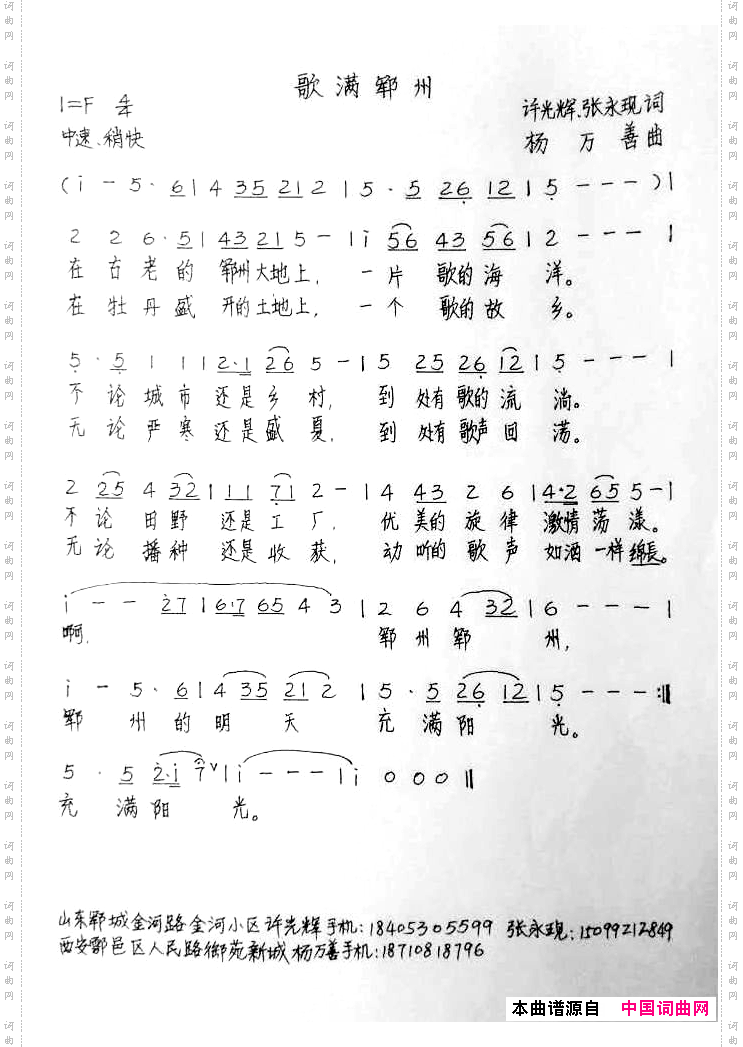 歌满郓州
1=F 4/4
许光辉、张永现词
中速、稍快
杨万善曲
(i - 5· 6 | 4 35 21 2 | 5· 5 26 12 | 5 - - -) |
2 2 6· 5 | 43 21 5 - | i 56 43 56 | 2 - - - |
在古老的 郓州大地上, 一片 歌的海 洋。
在牡丹盛 开的土地上, 一个 歌的故 乡。
5· 5 1 1 | 2·1 26 5 - | 5 25 26 12 | 5 - - - |
不论城市 还是乡村, 到 处有歌的流 淌。
无论严寒 还是盛夏, 到 处有歌声回 荡。
2 25 4 32 | 11 71 2 - | 4 43 2 6 | 4·2 65 5 - |
不论田野 还是工厂, 优美的旋律 激情荡漾。
无论播种 还是收获, 动听的歌声 如酒一样绵長。
i - - 27 | 6·7 65 4 3 | 2 6 4 32 | 6 - - - |
啊, 郓州郓 州,
i - 5· 6 | 4 35 21 2 | 5· 5 26 12 | 5 - - - :||
郓州的明天 充满阳 光。
5· 5 2·i 7 v | i - - - | i 0 0 0 ||
充满阳 光。
山东郓城金河路金河小区许光辉手机:18405305599 张永现:15099212849
西安鄠邑区人民路御苑新城杨万善手机:18710818796
本曲谱源自 中国词曲网
词曲网